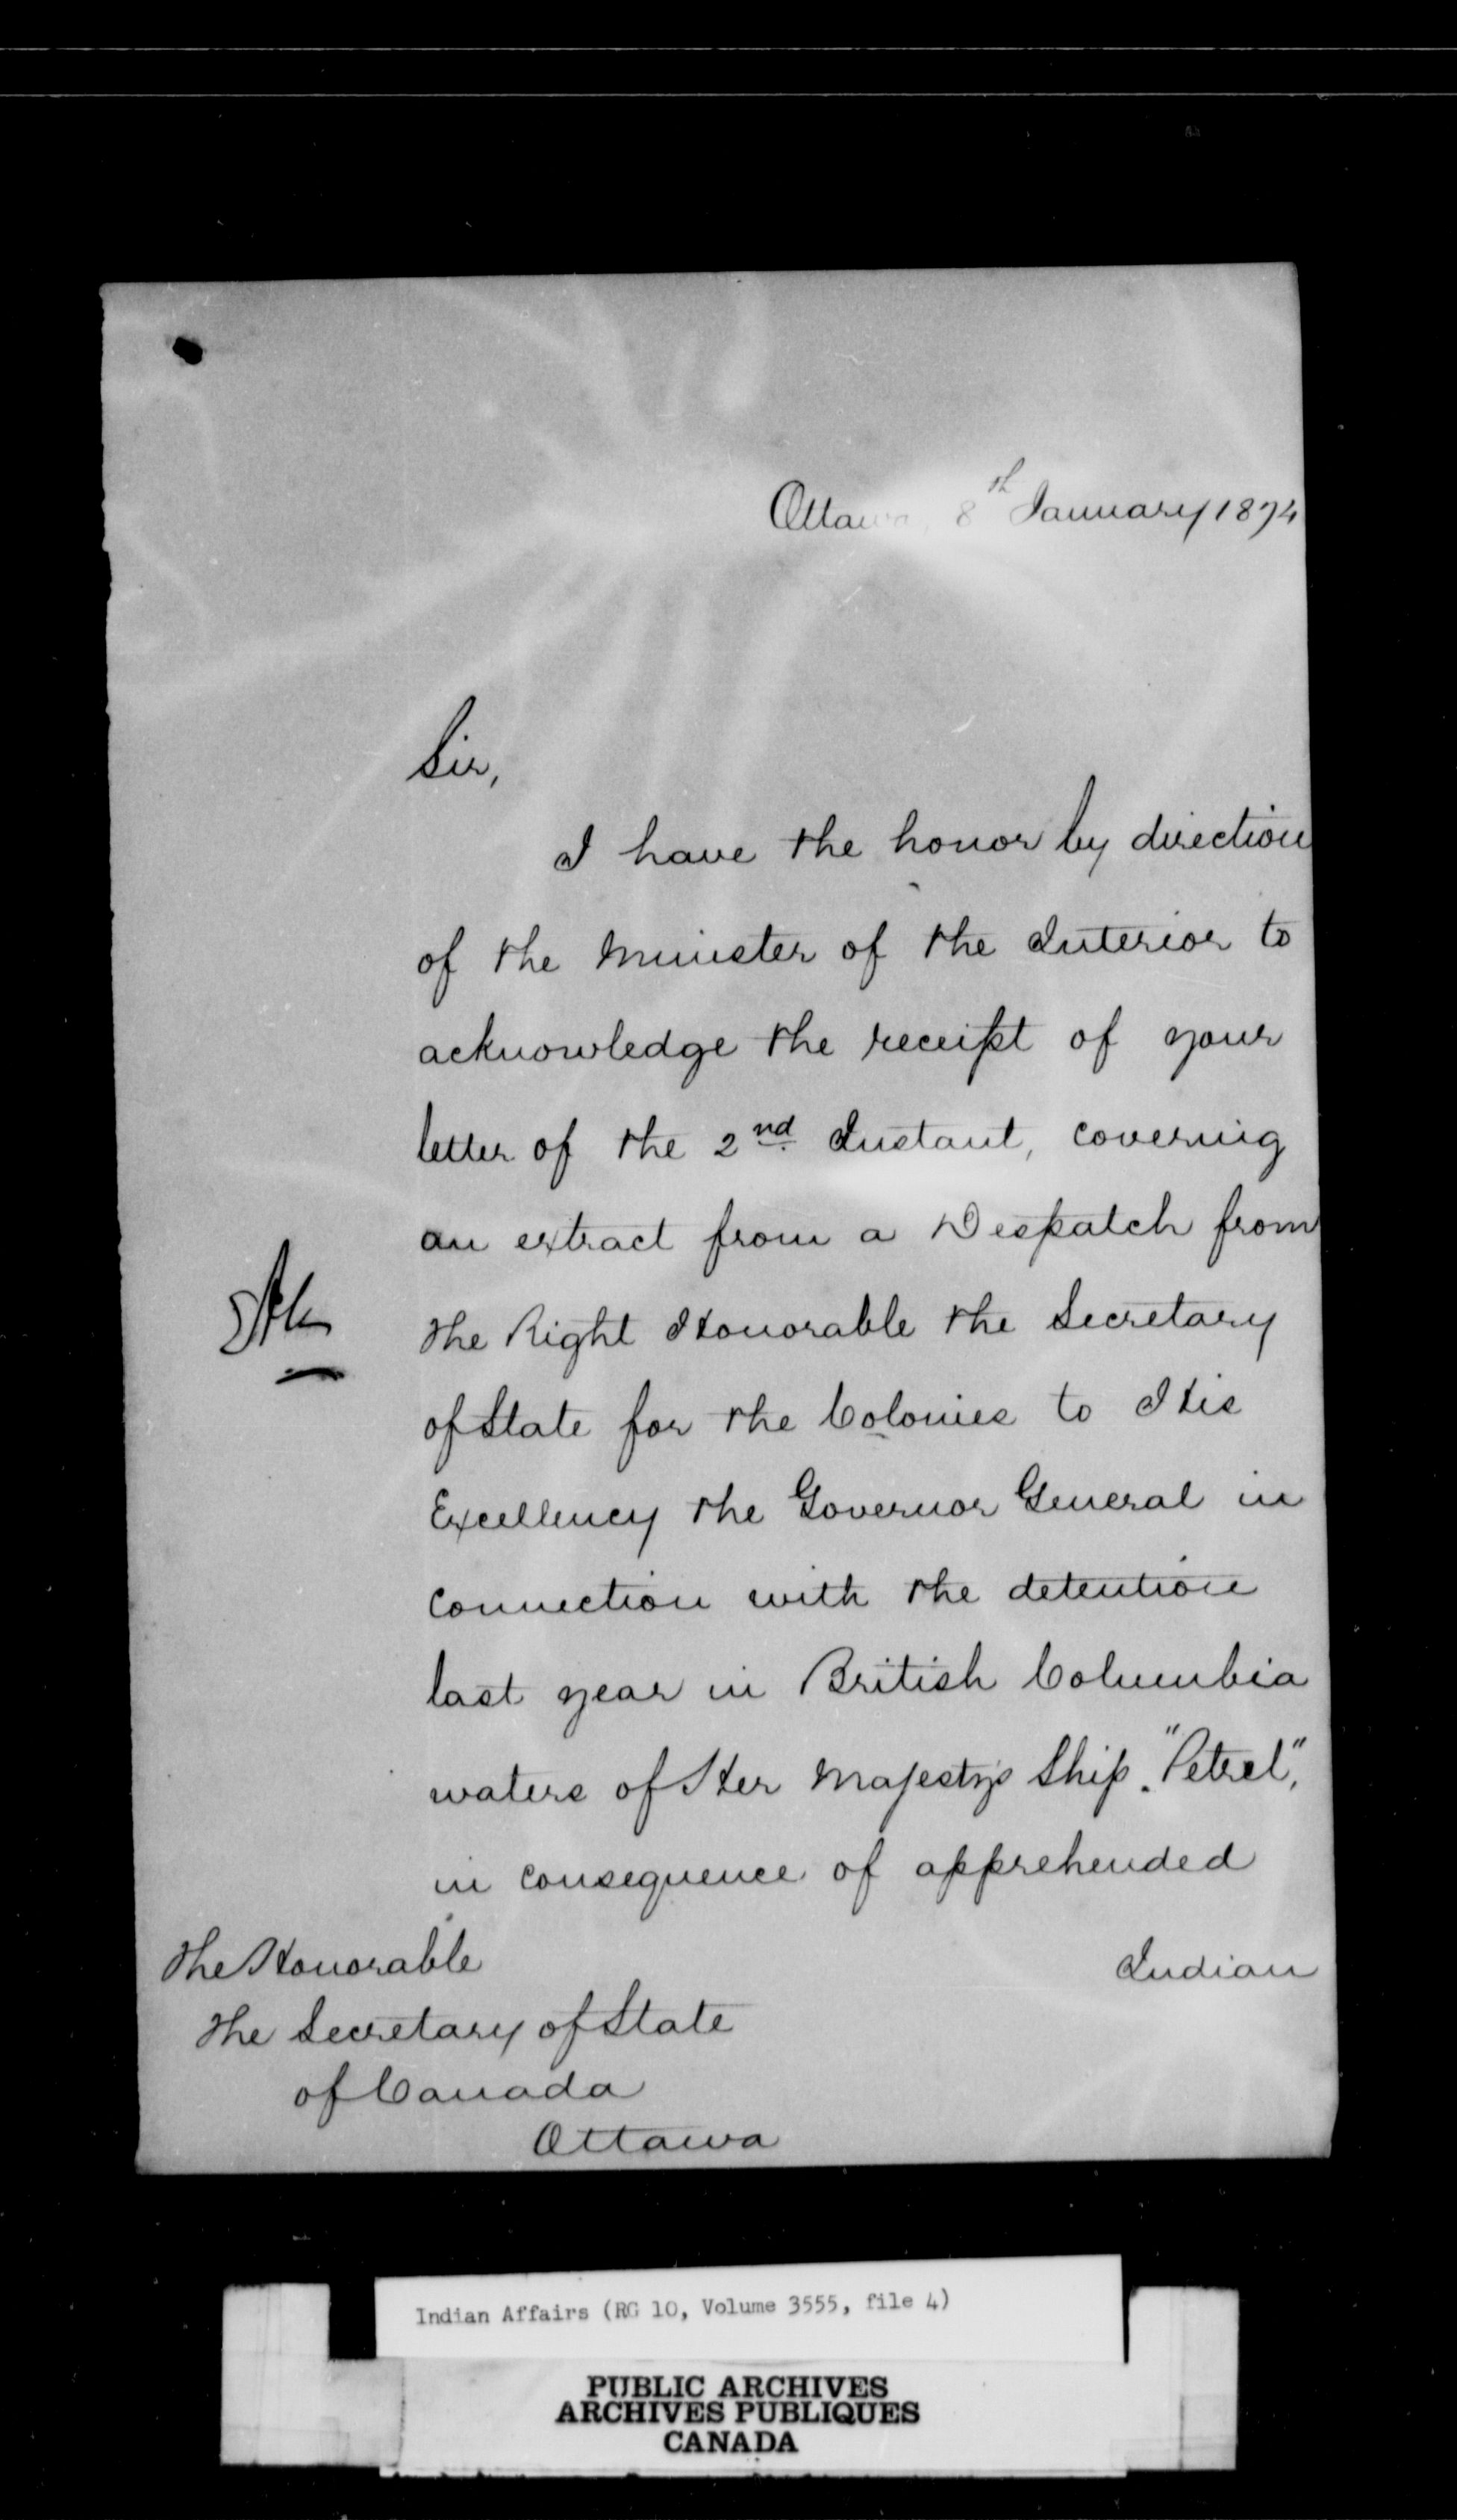 Ottawa, 8th January 1874
Sir,
I have the honor by direction
of the Minister of the Interior to
acknowledge the receipt of your
letter of the 2nd Instant, covering
an extract from a Despatch from
the Right Honorable the Secretary
of State for the Colonies to His
Excellency the Governor General in
connection with the detention
last year in British Columbia
waters of Her Majesty's Ship "Petrel",
in consequence of apprehended
Indian
The Honorable
The Secretary of State
of Canada
Ottawa
Indian Affairs (RG 10, Volume 3555, file 4)
PUBLIC ARCHIVES
ARCHIVES PUBLIQUES
CANADA